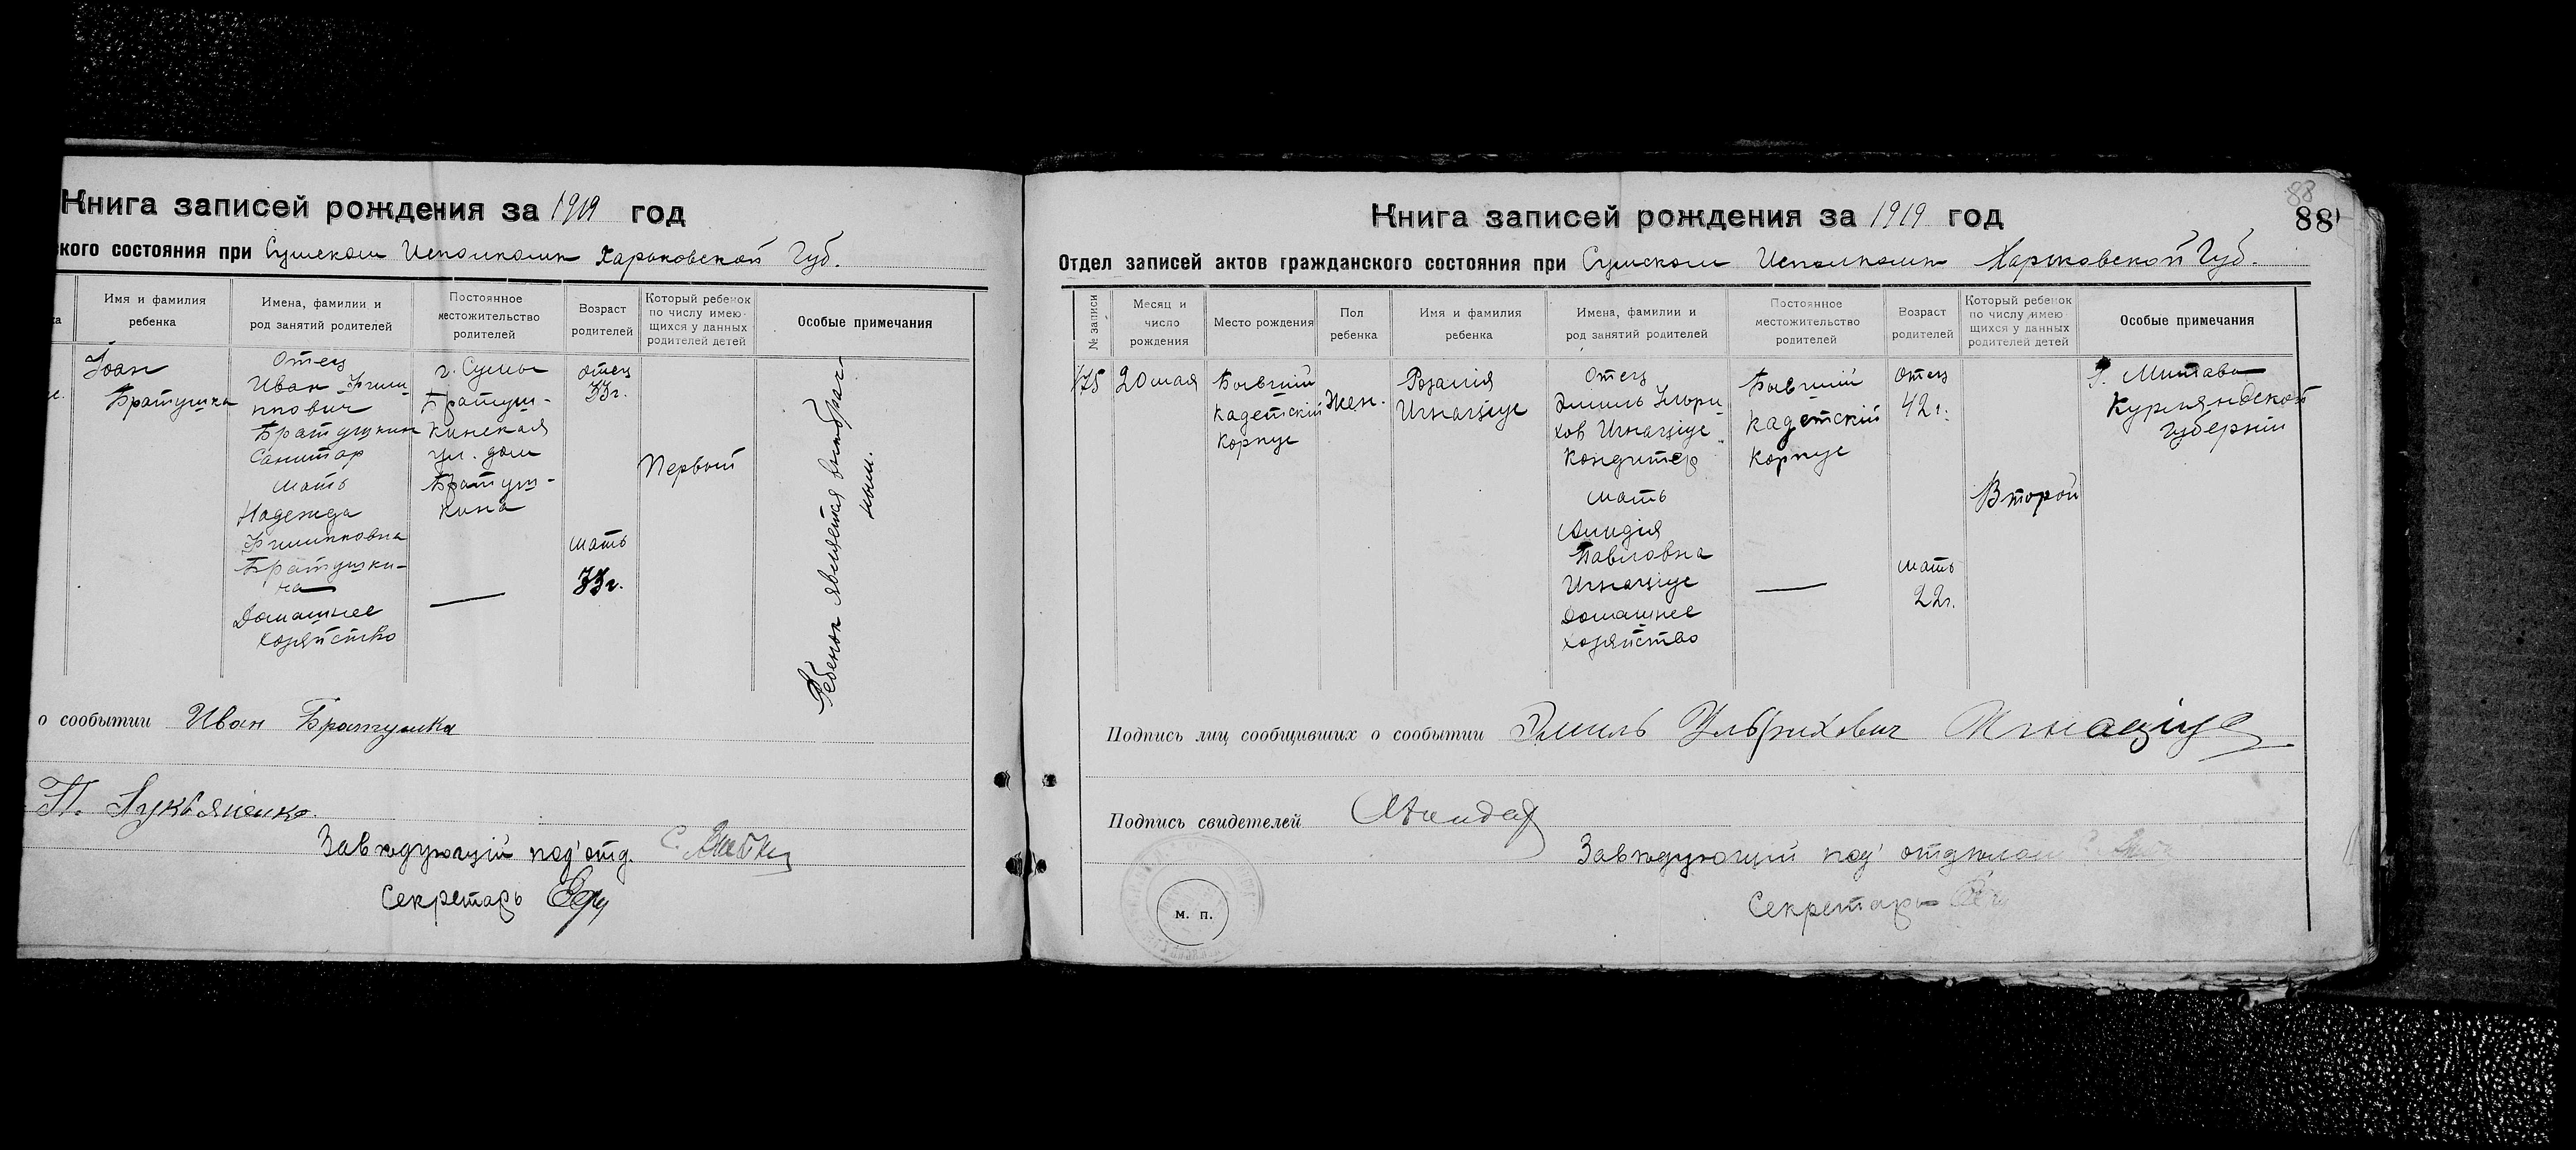 Книга записей рождения за 1919 год
ского состояния при Сумском Исполкоме Харьковской Губ.
Имя и фамилия ребенка
Имена, фамилии и род занятий родителей
Постоянное местожительство родителей
Возраст родителей
Который ребенок по числу имеющихся у данных родителей детей
Особые примечания
Іоан
Братушка
Отец
Иван Филип
пович
Братушкин
Санитар
мать
Надежда
Филипповна
Братушки-
на
Домашнее
хозяйство
г. Сумы
Братуш-
кинская
ул. дом
Братуш-
кина
—
отец
33г.
мать
33г.
Первый
Ребенок является внебрач
ным.
о сообытии Иван Братушка
П. Лукьяненко.
Завѣдующій под'отд. С.
Секретарь
88
88
Книга записей рождения за 1919 год
Отдел записей актов гражданского состояния при Сумском Исполкоме Харьковской Губ.
№ записи
Месяц и число рождения
Место рождения
Пол ребенка
Имя и фамилия ребенка
Имена, фамилии и род занятий родителей
Постоянное местожительство родителей
Возраст родителей
Который ребенок по числу имеющихся у данных родителей детей
Особые примечания
175
20 мая
Бывший
кадетскій
корпус
Жен.
Розалія
Игнаціус
Отец
Эмиль Ульри
хов Игнаціус
Кондитер
мать
Лидія
Павловна
Игнаціус
Домашнее
хозяйство
Бывшій
кадетскій
корпус
—
отец
42 г.
мать
22г.
Второй
г. Митава
Курляндской
губерніи
Подпись лиц сообщивших о сообытии Эмиль Ульрихович Игнаціус
Подпись свидетелей
Завѣдующій под' отделом
Секретарь
м. п.